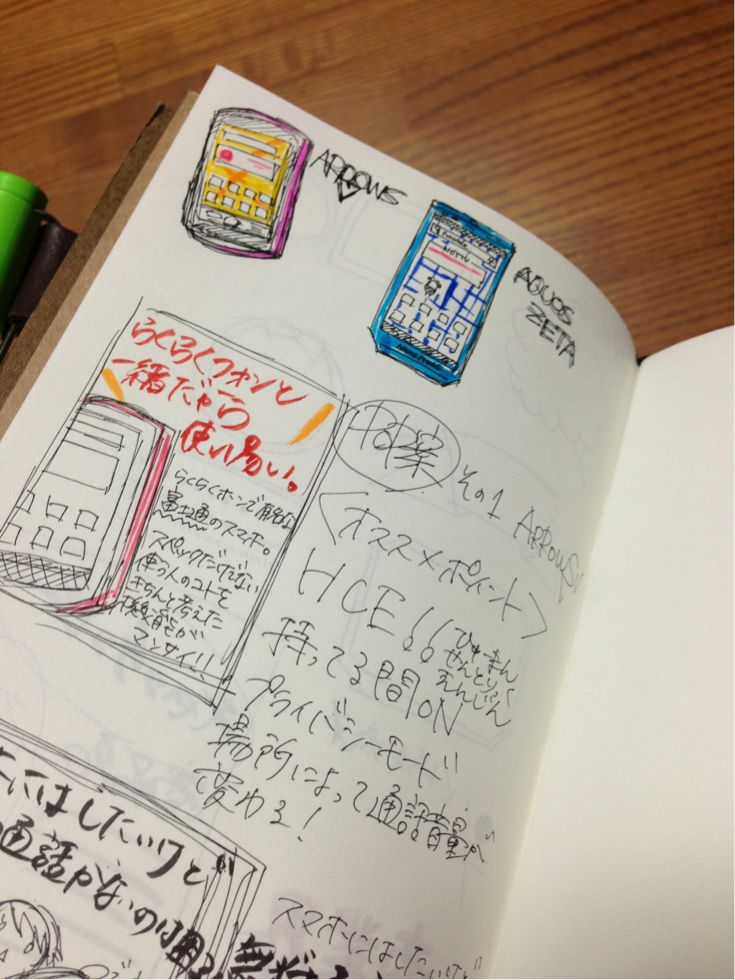 ARROWS
AQUOS
ZETA
HOTEL
らくらくフォンと
一緒だから
使い易い。
らくらくホンで有名な
富士通のスマホ。
スペックだけでない
使う人のコトを
きちんと考えた
機能が
マンサイ!!
その1 ARROWS
<オススメポイント>
HCE!!
ひゅーまん
せんとりっく
えんじん
持ってる間ON
プライバシーモード
場所によって通話音量が
変わる!
いはしたいけど
通話がないのは困る
スマホにはしたいけど